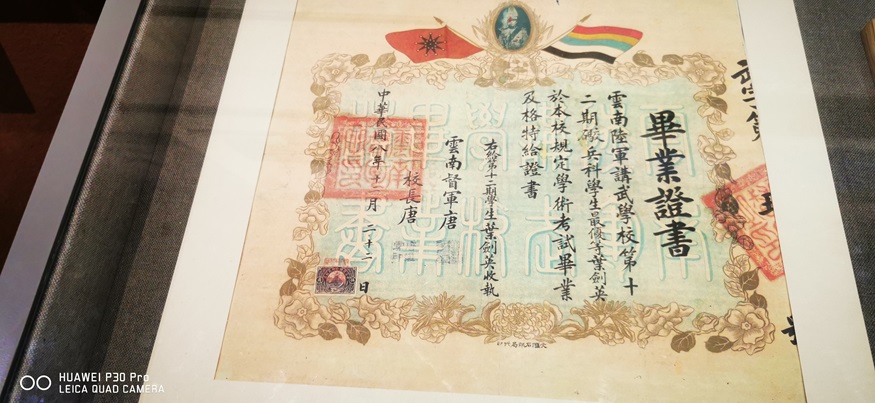 畢業證書
雲南陸軍講武學校第十
二期礮兵科學生最優等葉劍英
於本校規定學術考試畢業
及格特給證書
右給第十二期學生葉劍英收執
雲南督軍唐
校長唐
中華民國八年十二月二十二日
HUAWEI P30 Pro
LEICA QUAD CAMERA